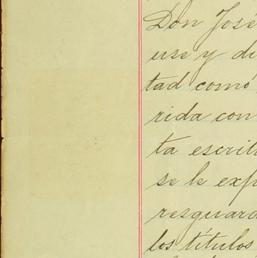 Don José
use y di
tad comó
rida con
ta escrit
se le exp
resguard
los títulos